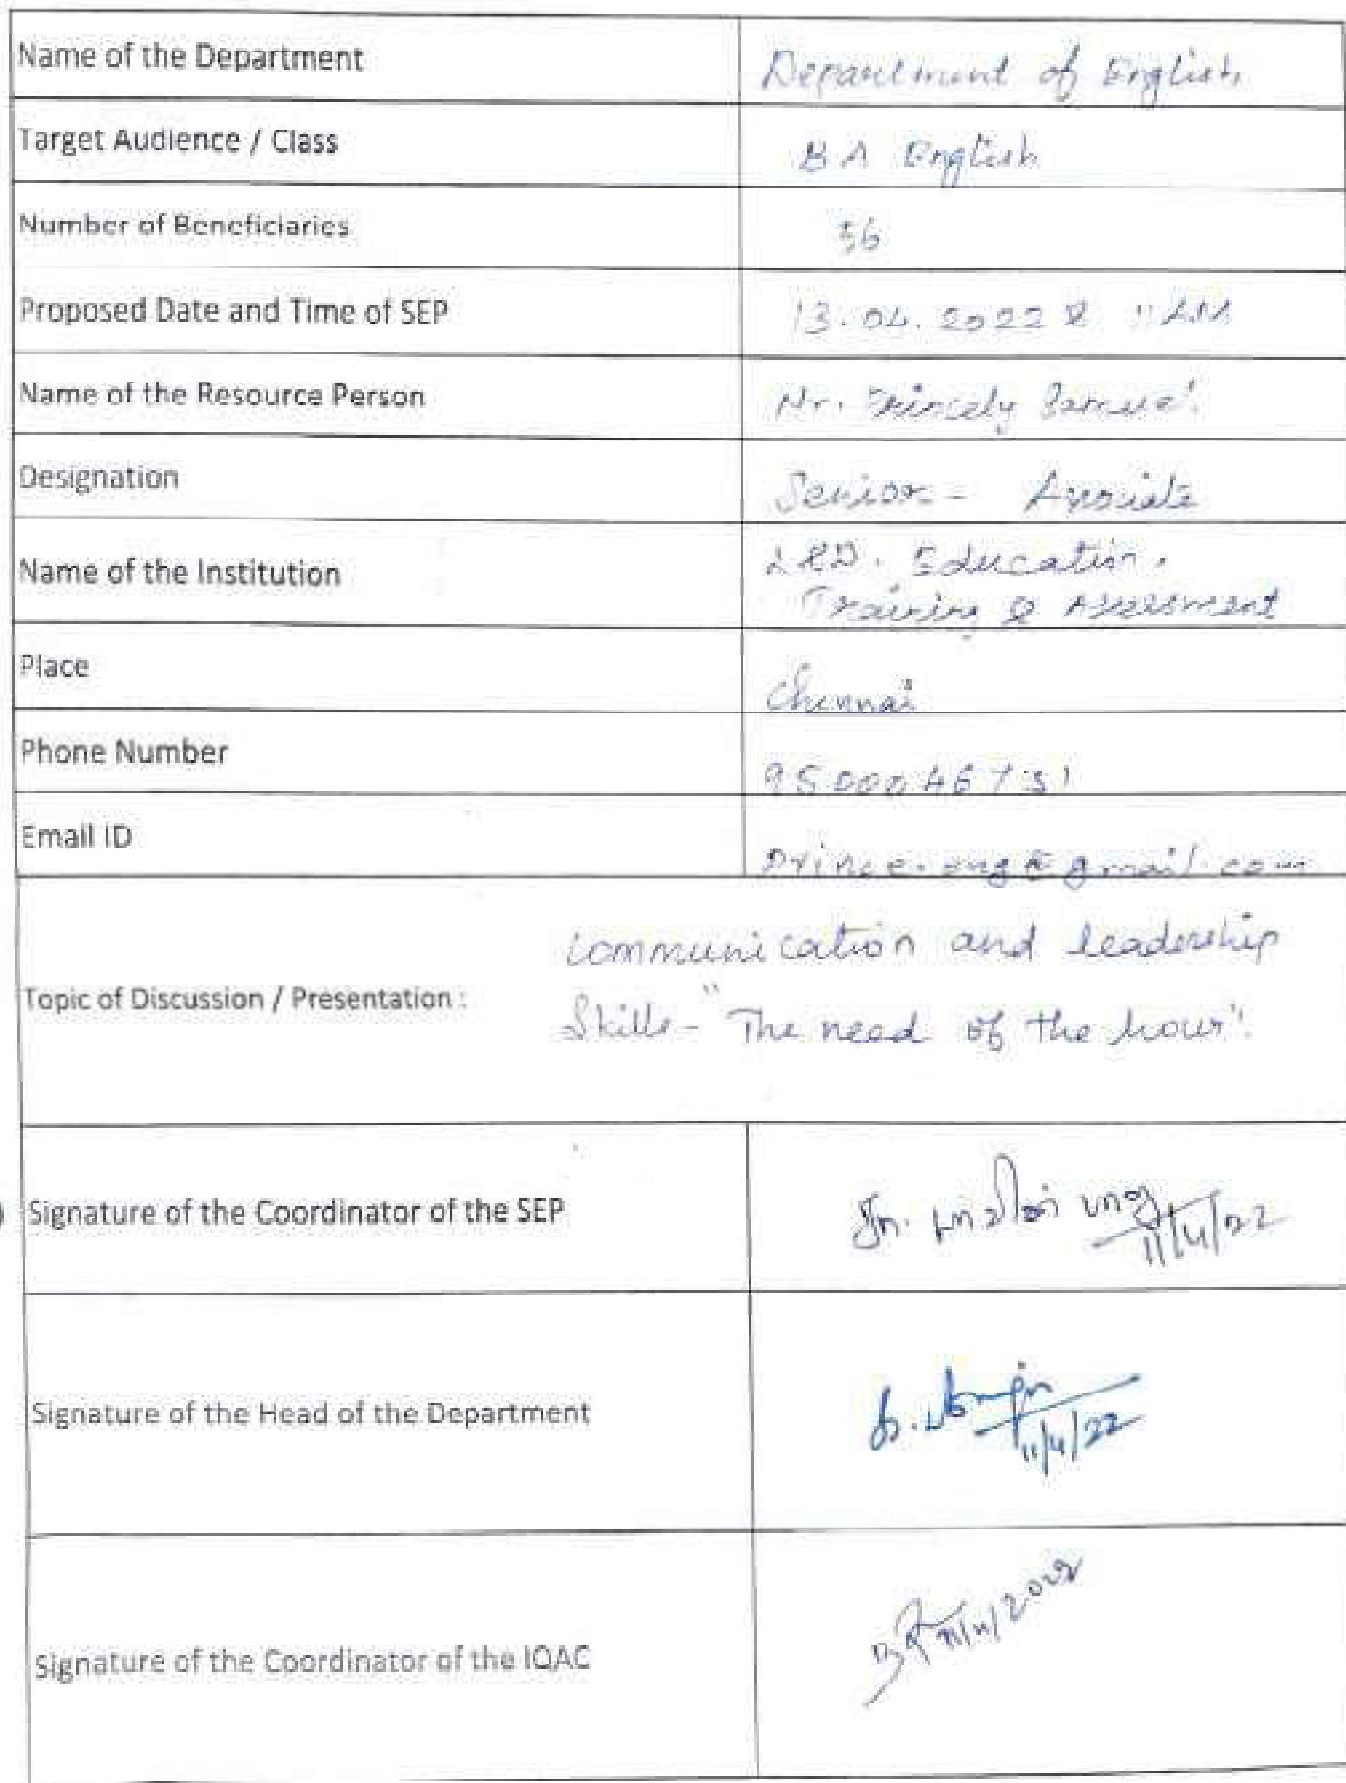 Name of the Department Department of English
Target Audience / Class B A English
Number of Beneficiaries 56
Proposed Date and Time of SEP 13.04.2022 & 11 AM
Name of the Resource Person Mr. Princely Samuel
Designation Senior - Associate
Name of the Institution L&D. Education.
Training & Assessment
Place Chennai
Phone Number 9500046731
Email ID prince.eng@gmail.com
communication and leadership
Topic of Discussion / Presentation :
Skills - "The need of the hour".
Signature of the Coordinator of the SEP 11/4/22
Signature of the Head of the Department 11/4/22
Signature of the Coordinator of the IQAC 11/4/2022